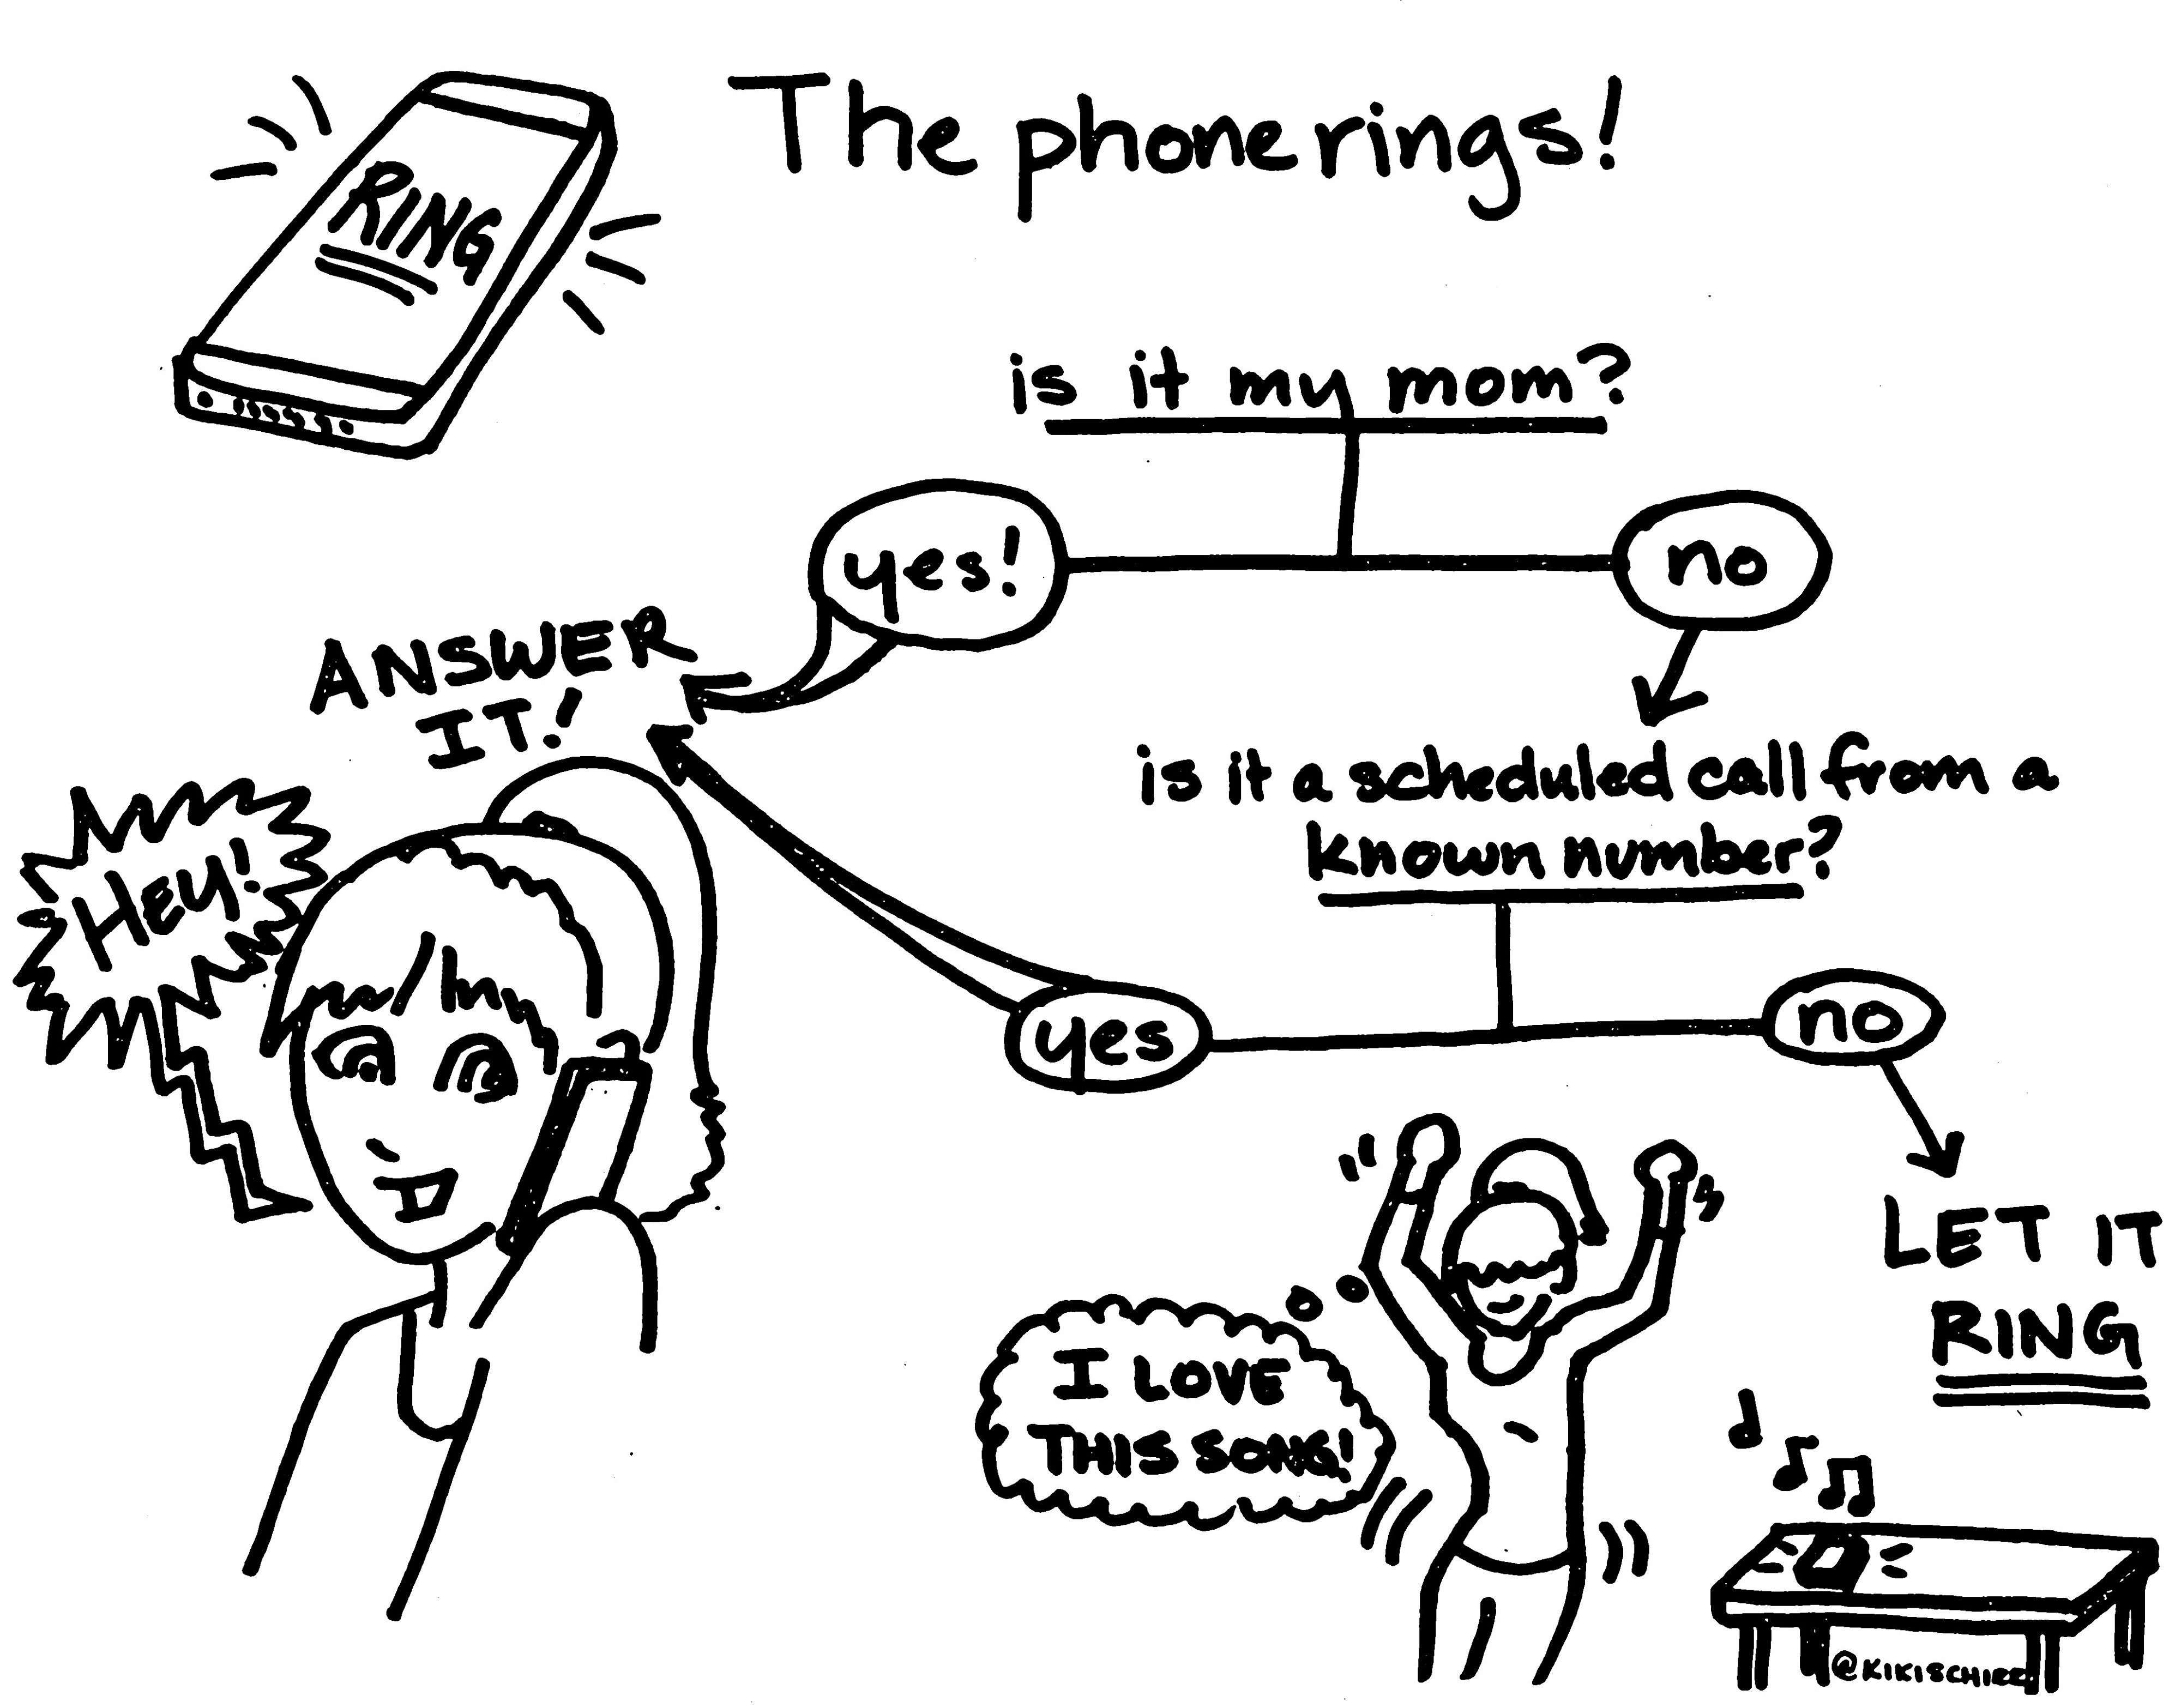 The phone rings!
RING
is it my mom?
yes!
no
ANSWER
IT!
is it a scheduled call from a
known number?
Hey!
yes
no
LET IT
RING
I LOVE
THIS SONG!